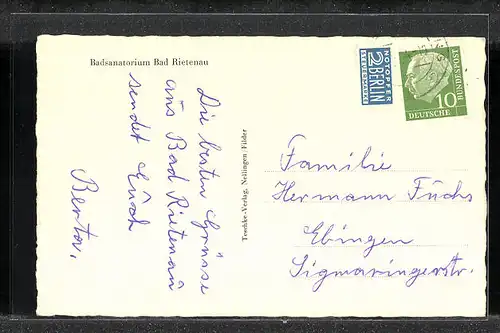 Badsanatorium Bad Rietenau
Die besten Grüsse
aus Bad Rietenau
sendet Euch
Berta.
Teschke-Verlag, Nellingen/Filder
NOTOPFER
2 BERLIN
STEUERMARKE
DEUTSCHE
BUNDESPOST
10
Familie
Hermann Fuchs
Ebingen
Sigmaringerstr.